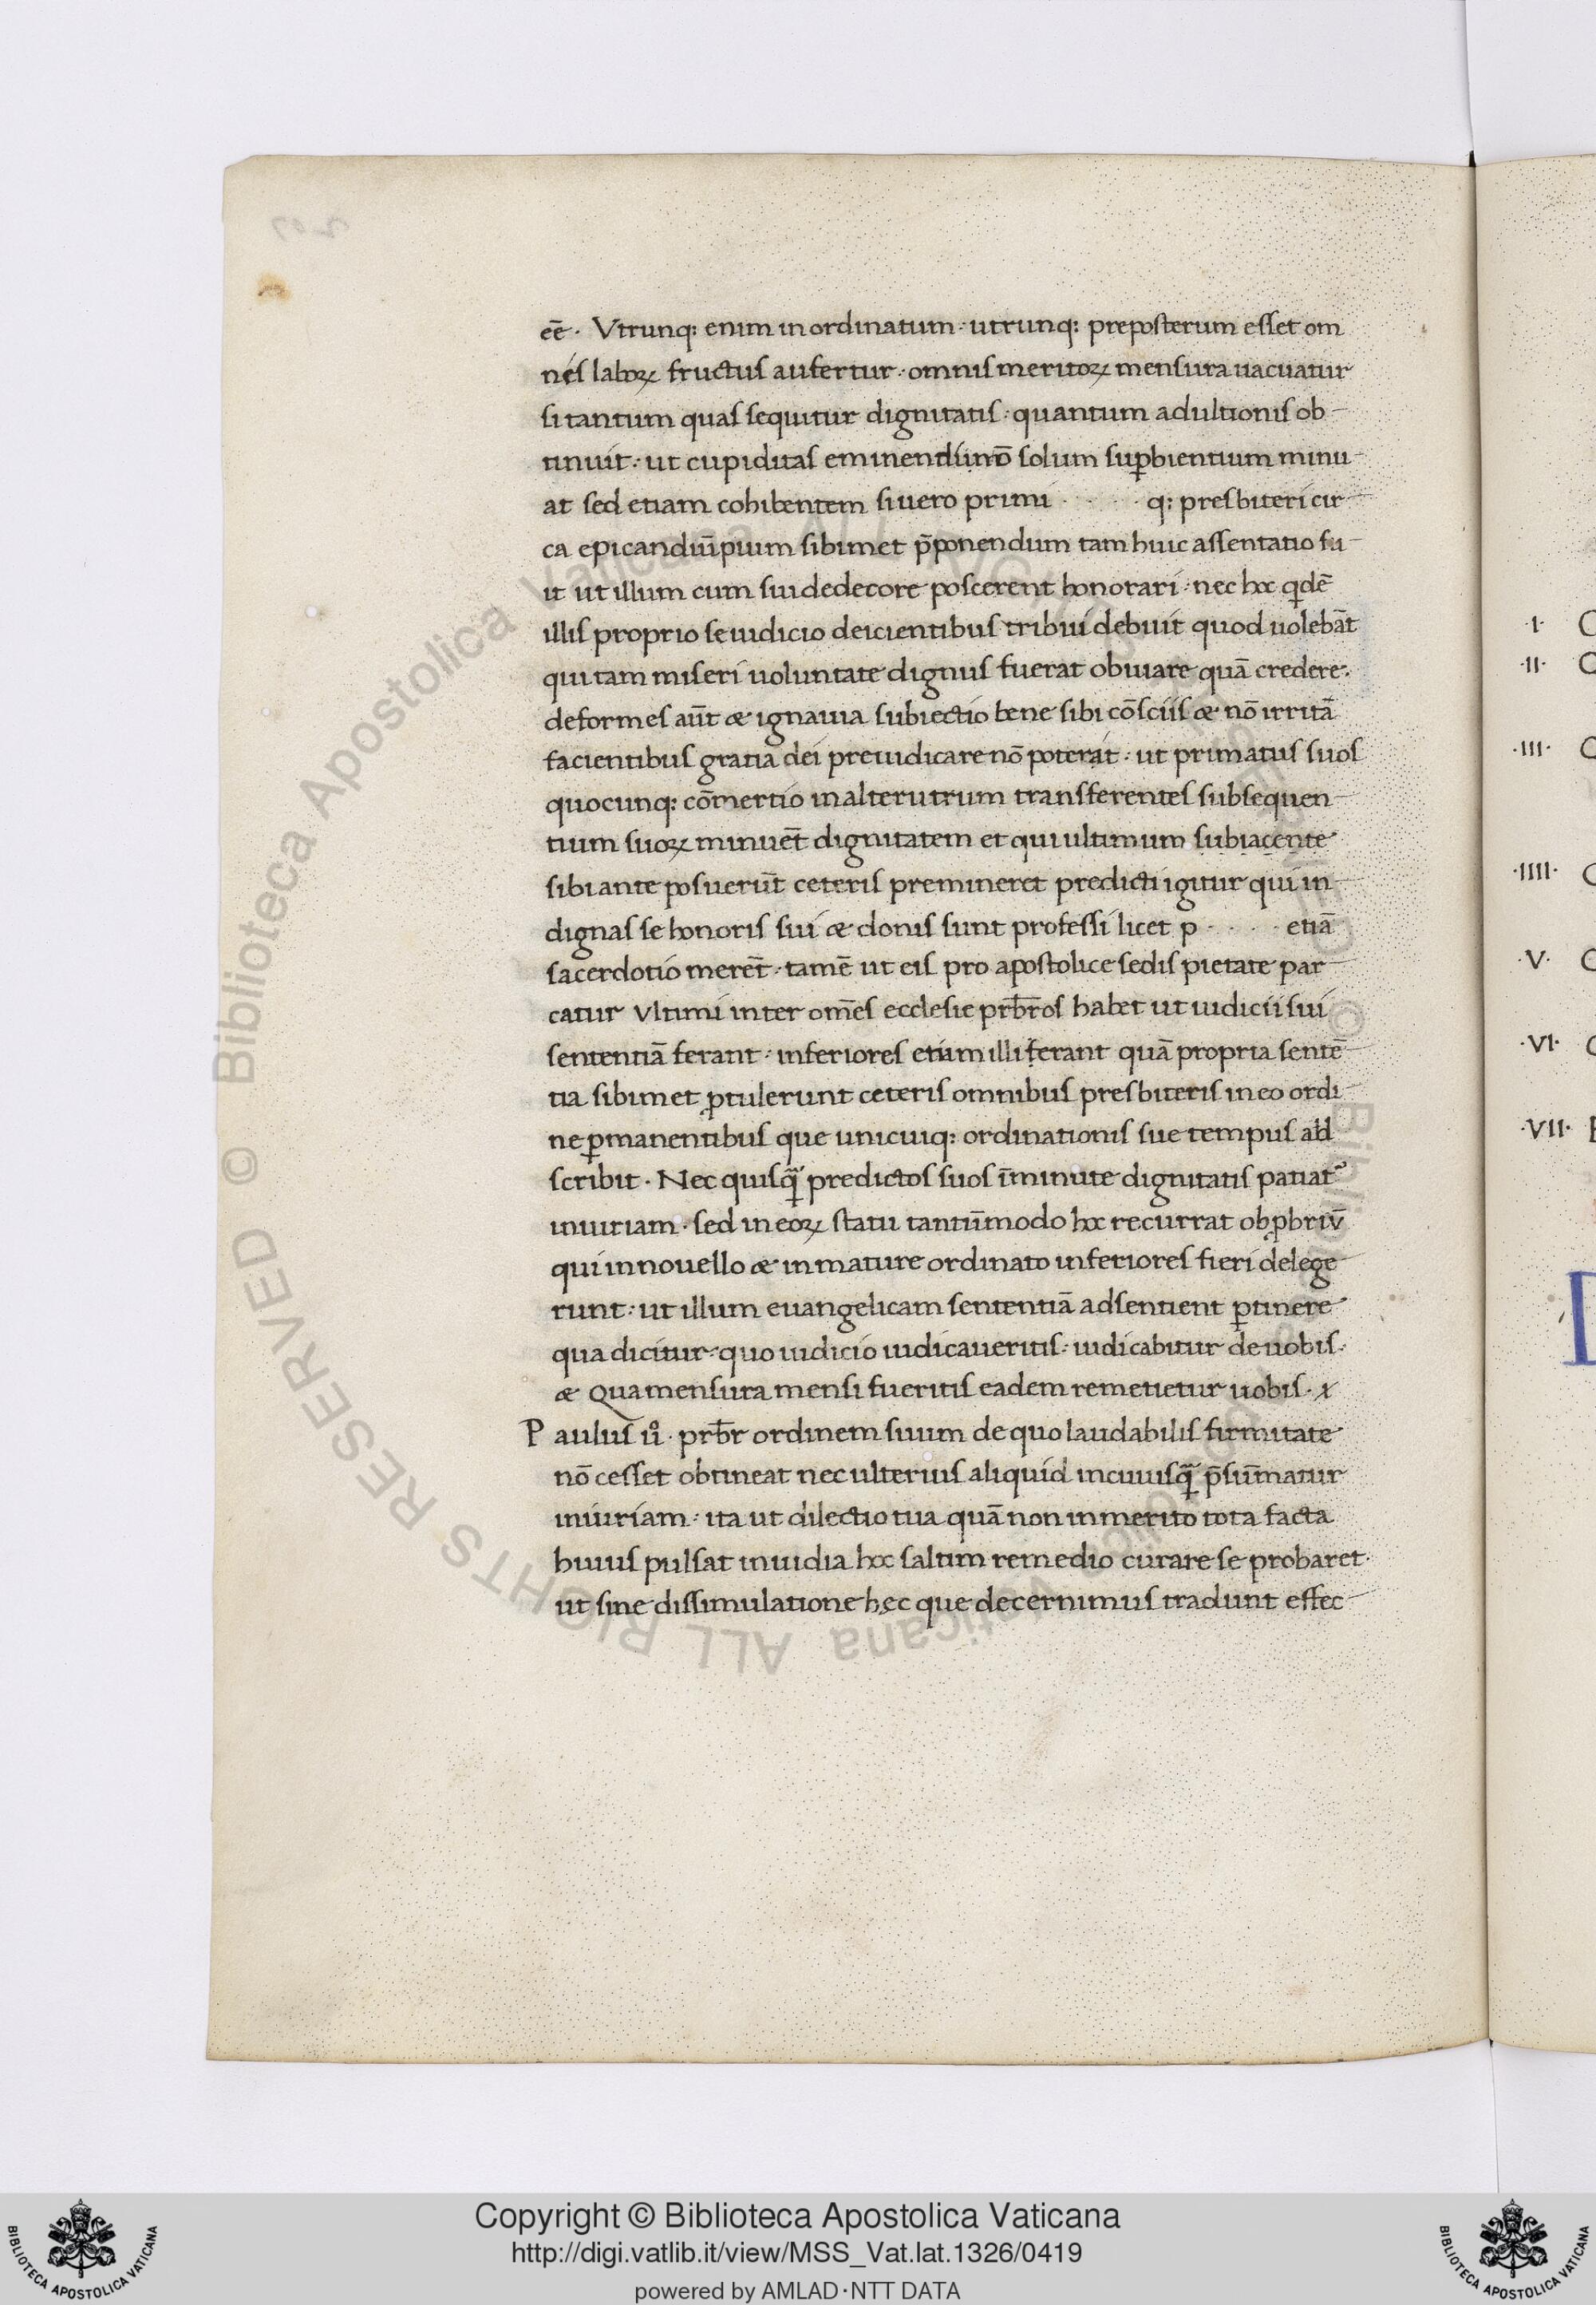 eē · Vtrunq: enim in ordinatum · utrunq: preposterum esset om
nes laboꝝ fructus aufertur · omnis meritoꝝ mensura uacuatur
si tantum quas sequitur dignitatis · quantum adultionis ob-
tinuit · ut cupiditas eminendi nō solum suꝑbientium minu-
at sed etiam cohibentem si uero primi · · · · · q: presbiteri cir-
ca epicandiū pium sibimet p̄ponendum tam huic assentatio fu-
it ut illum cum sui dedecore poscerent honorari · nec hoc qdē
illis proprio se iudicio deicientibus tribui debuit quod uolebāt
qui tam miseri uoluntate dignus fuerat obuiare quā credere ·
deformes aūt æ ignauia subiectio bene sibi cōsciis æ nō irritā
facientibus gratia dei preiudicare nō poterat · ut primatus suos
quocunq: cōmertio in alterutrum transferentes subsequen-
tium suoꝝ minuēt dignitatem et qui ultimum subiacente
sibi ante posuerūt ceteris premineret predicti igitur qui in-
dignas se honoris sui æ donis sunt professi licet p · · · · etiā
sacerdotio merēt · tamē ut eis pro apostolice sedis pietate par-
catur Vltimi inter om̄es ecclesie prb̄ros habet ut iudicii sui
sententiā ferant · inferiores etiam illi ferant quā propria sentē-
tia sibimet ꝓtulerunt ceteris omnibus presbiteris in eo ordi-
ne ꝑmanentibus que unicuiq: ordinationis sue tempus abd
scribit · Nec quisqᷓ predictos suos īminute dignitatis patiat᷑
iniuriam · sed in eoꝝ statu tantūmodo hoc recurrat obꝓbriū
qui in nouello æ inmature ordinato inferiores fieri delege-
runt · ut illum euangelicam sententiā adsentient ꝑtinere
qua dicitur · quo iudicio iudicaueritis · iudicabitur de uobis ·
æ Qua mensura mensi fueritis eadem remetietur uobis ·
Paulus u̾o · prb̄r ordinem suum de quo laudabilis firmitate
nō cesset obtineat nec ulterius aliquid in cuiusqᷓ p̄sūmatur
iniuriam · ita ut dilectio tua quā non inmerito tota facta
huius pulsat inuidia hoc saltim remedio curare se probaret ·
ut sine dissimulatione hec que decernimus tradunt effec-
·I·
·II·
·III·
·IIII·
·V·
·VI·
·VII·
Copyright © Biblioteca Apostolica Vaticana
http://digi.vatlib.it/view/MSS_Vat.lat.1326/0419
powered by AMLAD·NTT DATA
BIBLIOTECA APOSTOLICA VATICANA
BIBLIOTECA APOSTOLICA VATICANA
© Biblioteca Apostolica Vaticana ALL RIGHTS RESERVED © Biblioteca Apostolica Vaticana ALL RIGHTS RESERVED